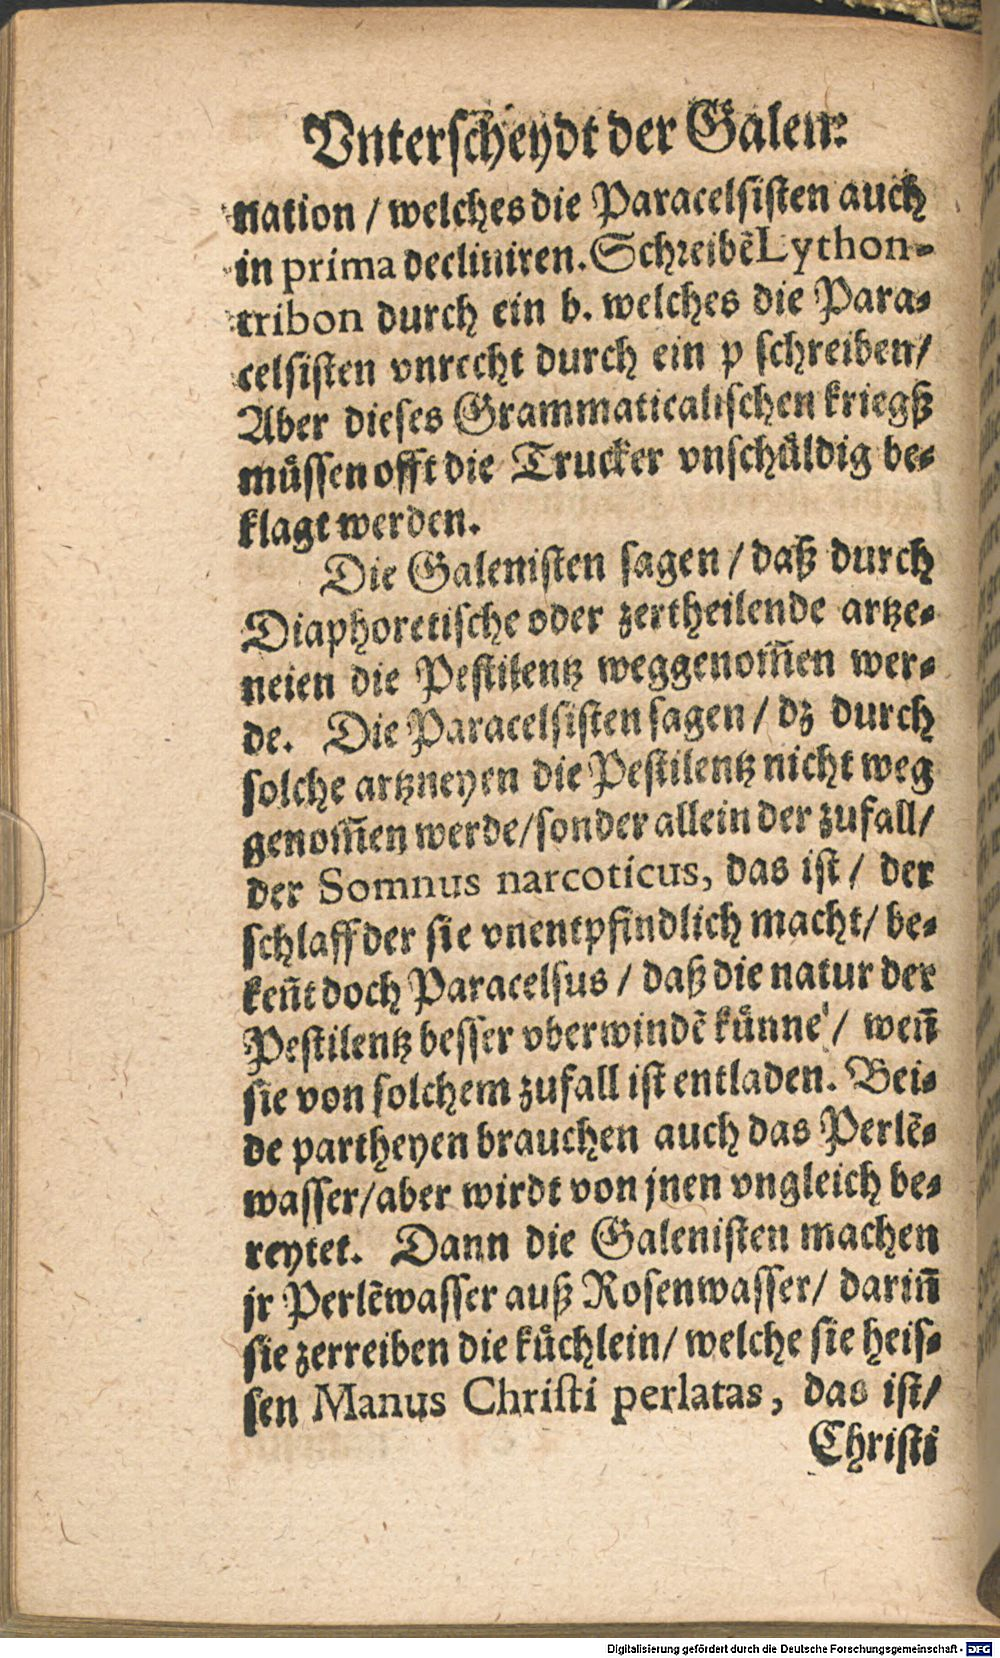 Vnterscheydt der Galen:
nation / welches die Paracelsisten auch
in prima decliniren. Schreibẽ Lython-
tribon durch ein b. welches die Para-
celsisten vnrecht durch ein p schreiben/
Aber dieses Grammaticalischen kriegß
muͤssen offt die Trucker vnschuͤldig be-
klagt werden.
Die Galenisten sagen / daß durch
Diaphoretische oder zertheilende artze-
neien die Pestilentz weggenom̃en wer-
de. Die Paracelsisten sagen / dz durch
solche artzneyen die Pestilentz nicht weg
genom̃en werde/sonder allein der zufall/
der Somnus narcoticus, das ist / der
schlaff der sie vnentpfindlich macht/ be-
keñt doch Paracelsus / daß die natur der
Pestilentz besser vberwindẽ kuͤnne / weñ
sie von solchem zufall ist entladen. Bei-
de partheyen brauchen auch das Perlẽ-
wasser/aber wirdt von jnen vngleich be-
reytet. Dann die Galenisten machen
jr Perlẽwasser auß Rosenwasser/ dariñ
sie zerreiben die kuͤchlein/ welche sie heis-
sen Manus Christi perlatas, das ist/
Christi
Digitalisierung gefördert durch die Deutsche Forschungsgemeinschaft - DFG